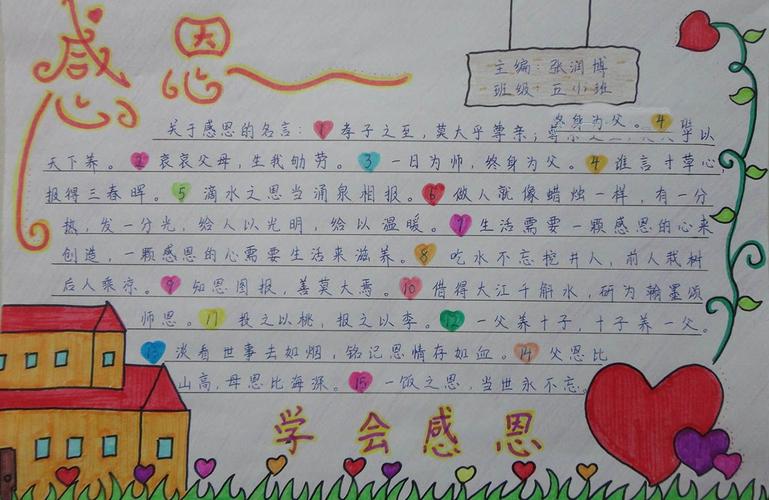 感恩
主编：张润博
班级：五小班
关于感恩的名言：1 孝子之至，莫大乎尊亲；尊
终身为父。4
乎以
天下养。2 哀哀父母，生我劬劳。3 一日为师，终身为父。4 谁言寸草心，
报得三春晖。5 滴水之恩当涌泉相报。6 做人就像蜡烛一样，有一分
热，发一分光，给人以光明，给以温暖。7 生活需要一颗感恩的心来
创造，一颗感恩的心需要生活来滋养。8 吃水不忘挖井人，前人栽树
后人乘凉。9 知恩图报，善莫大焉。10 借得大江千斛水，研为翰墨颂
师恩。11 投之以桃，报之以李。12 一父养十子，十子养一父。
13 淡看世事去如烟，铭记恩情存如血。14 父恩比
山高，母恩比海深。15 一饭之恩，当世永不忘。
学会感恩